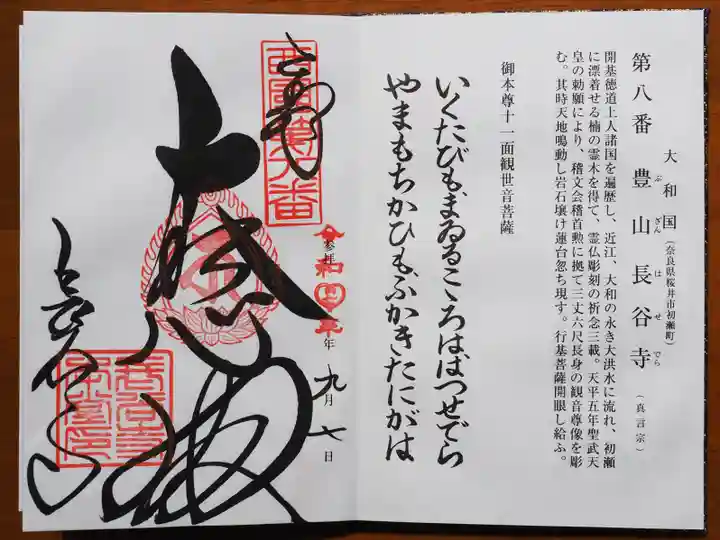 大和国（奈良県桜井市初瀬町）
第八番 豊山長谷寺（真言宗）
ぶ ざん は せ でら
開基徳道上人諸国を遍歴し、近江、大和の永き大洪水に流れ、初瀬
に漂着せる楠の霊木を得て、霊仏彫刻の祈念三載。天平五年聖武天
皇の勅願により、稽文会稽首勲に拠て三丈六尺長身の観音尊像を彫
む。其時天地鳴動し岩石壊け蓮台忽ち現す。行基菩薩開眼し給ふ。
御本尊十一面観世音菩薩
いくたびもまゐるこゝろははつせでら
やまもちかひもふかきたにがは
西国第八番
奉拝
参拝
令和 年 九月 七日
大悲閣
長谷寺